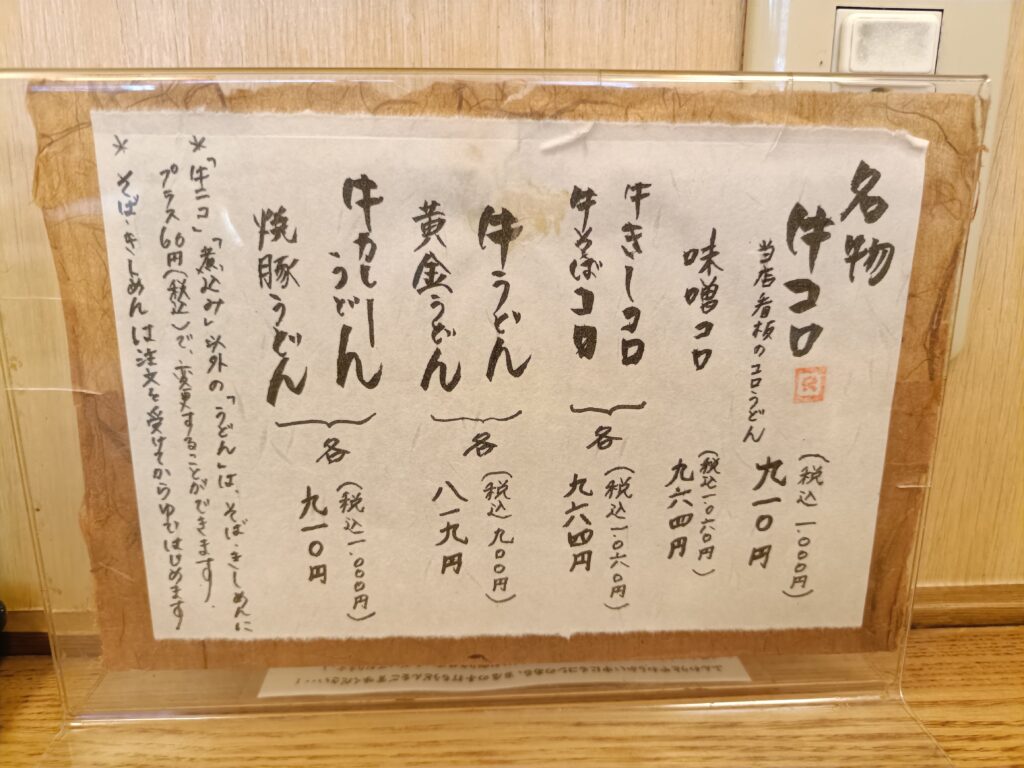 名物
牛コロ
(税込 一、〇〇〇円)
九一〇円
当店看板のコロうどん
味噌コロ
(税込一、〇六〇円)
九六四円
牛きしコロ
牛そばコロ
各
(税込一、〇六〇円)
九六四円
牛うどん
黄金うどん
各
(税込 九〇〇円)
八一九円
牛カレー
うどん
焼豚うどん
各
(税込一、〇〇〇円)
九一〇円
*「牛コロ」「煮込み」以外の「うどん」は、そば・きしめんに
プラス60円(税込)で、変更することができます。
* そば・きしめんは注文を受けてからゆではじめます